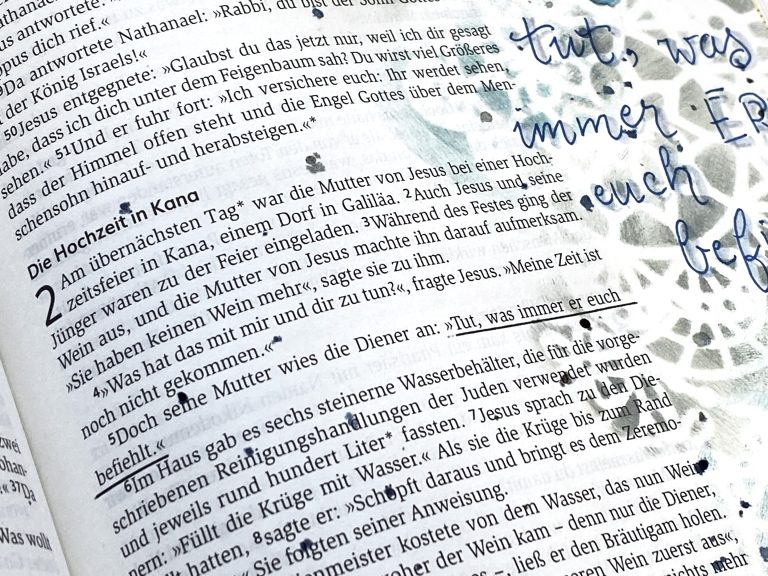 us antwortete: »Rabbi, du bist der Sohn Gottes
opus dich rief.«
Da antwortete Nathanael:
der König Israels!«
50Jesus entgegnete: »Glaubst du das jetzt nur, weil ich dir gesagt
habe, dass ich dich unter dem Feigenbaum sah? Du wirst viel Größeres
sehen.« 51Und er fuhr fort: »Ich versichere euch: Ihr werdet sehen,
dass der Himmel offen steht und die Engel Gottes über dem Men-
schensohn hinauf- und herabsteigen.«*
Die Hochzeit in Kana
2 Am übernächsten Tag* war die Mutter von Jesus bei einer Hoch-
zeitsfeier in Kana, einem Dorf in Galiläa. 2Auch Jesus und seine
Jünger waren zu der Feier eingeladen. 3Während des Festes ging der
Wein aus, und die Mutter von Jesus machte ihn darauf aufmerksam.
»Sie haben keinen Wein mehr«, sagte sie zu ihm.
4»Was hat das mit mir und dir zu tun?«, fragte Jesus. »Meine Zeit ist
noch nicht gekommen.«
5Doch seine Mutter wies die Diener an: »Tut, was immer er euch
befiehlt.«
6Im Haus gab es sechs steinerne Wasserbehälter, die für die vorge-
schriebenen Reinigungshandlungen der Juden verwendet wurden
und jeweils rund hundert Liter* fassten. 7Jesus sprach zu den Die-
nern: »Füllt die Krüge mit Wasser.« Als sie die Krüge bis zum Rand
hatten, 8sagte er: »Schöpft daraus und bringt es dem Zeremo-
Sie folgten seiner Anweisung.
kostete von dem Wasser, das nun Wein
woher der Wein kam – denn nur die Diener,
–, ließ er den Bräutigam holen.
Wein zuerst aus«,
nichts mehr
zwei
37Da
Was wollt
tut, was
immer ER
euch